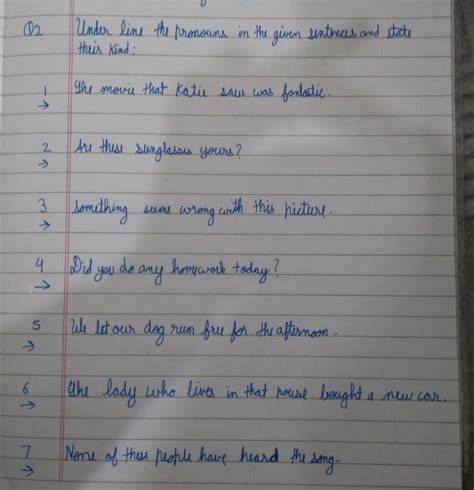 Q2 Under line the pronouns in the given sentences and state
their kind:
1 The movie that Katie saw was fantastic.
→
2 Are these sunglasses yours?
→
3 Something seems wrong with this picture.
→
4 Did you do any homework today?
→
5 We let our dog run free for the afternoon.
→
6 The lady who lives in that house bought a new car.
→
7 None of these people have heard the song.
→